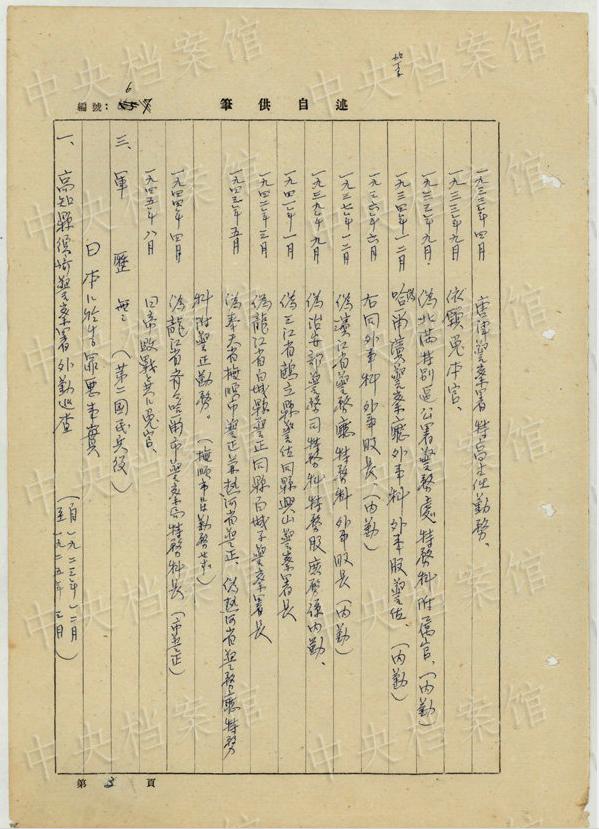 述自供筆
編號：
6
一九三三年四月　唐津警察署特高主任勤務、
一九三三年九月　依願免本官、
一九三三年九月、偽北満特別區公署警務處特務科附属官、（内勤）
一九三四年一二月　哈尔濱警察廳外事科外事股警佐、（内勤）
一九三六年六月　右同外事科外事股長、（内勤）
一九三七年一二月　偽濱江省警務廳特務科外事股長（内勤）
一九三九年九月　偽治安部警務司特務科特務股庶務係内勤、
一九四一年一月　偽三江省鶴立縣警佐同縣興山警察署長
一九四二年三月　偽龍江省白城縣警正同縣白城子警察署長
一九四三年五月　偽奉天省撫順市警正兼熱河省警正、偽熱河省警務廳特務
科附警正勤務。（撫順市ハ勤務セズ）
一九四四年四月　偽龍江省齊々哈爾市警察局特務科長（市警正）
一九四五年八月　日帝敗戦共ニ免官、
三、軍歴　無シ（第二國民兵役）
日本ニ於ケル罪悪事實
一、高知縣須崎警察署外勤巡査（自一九二三年一二月至一九二五年三月）
第3頁
中央档案馆